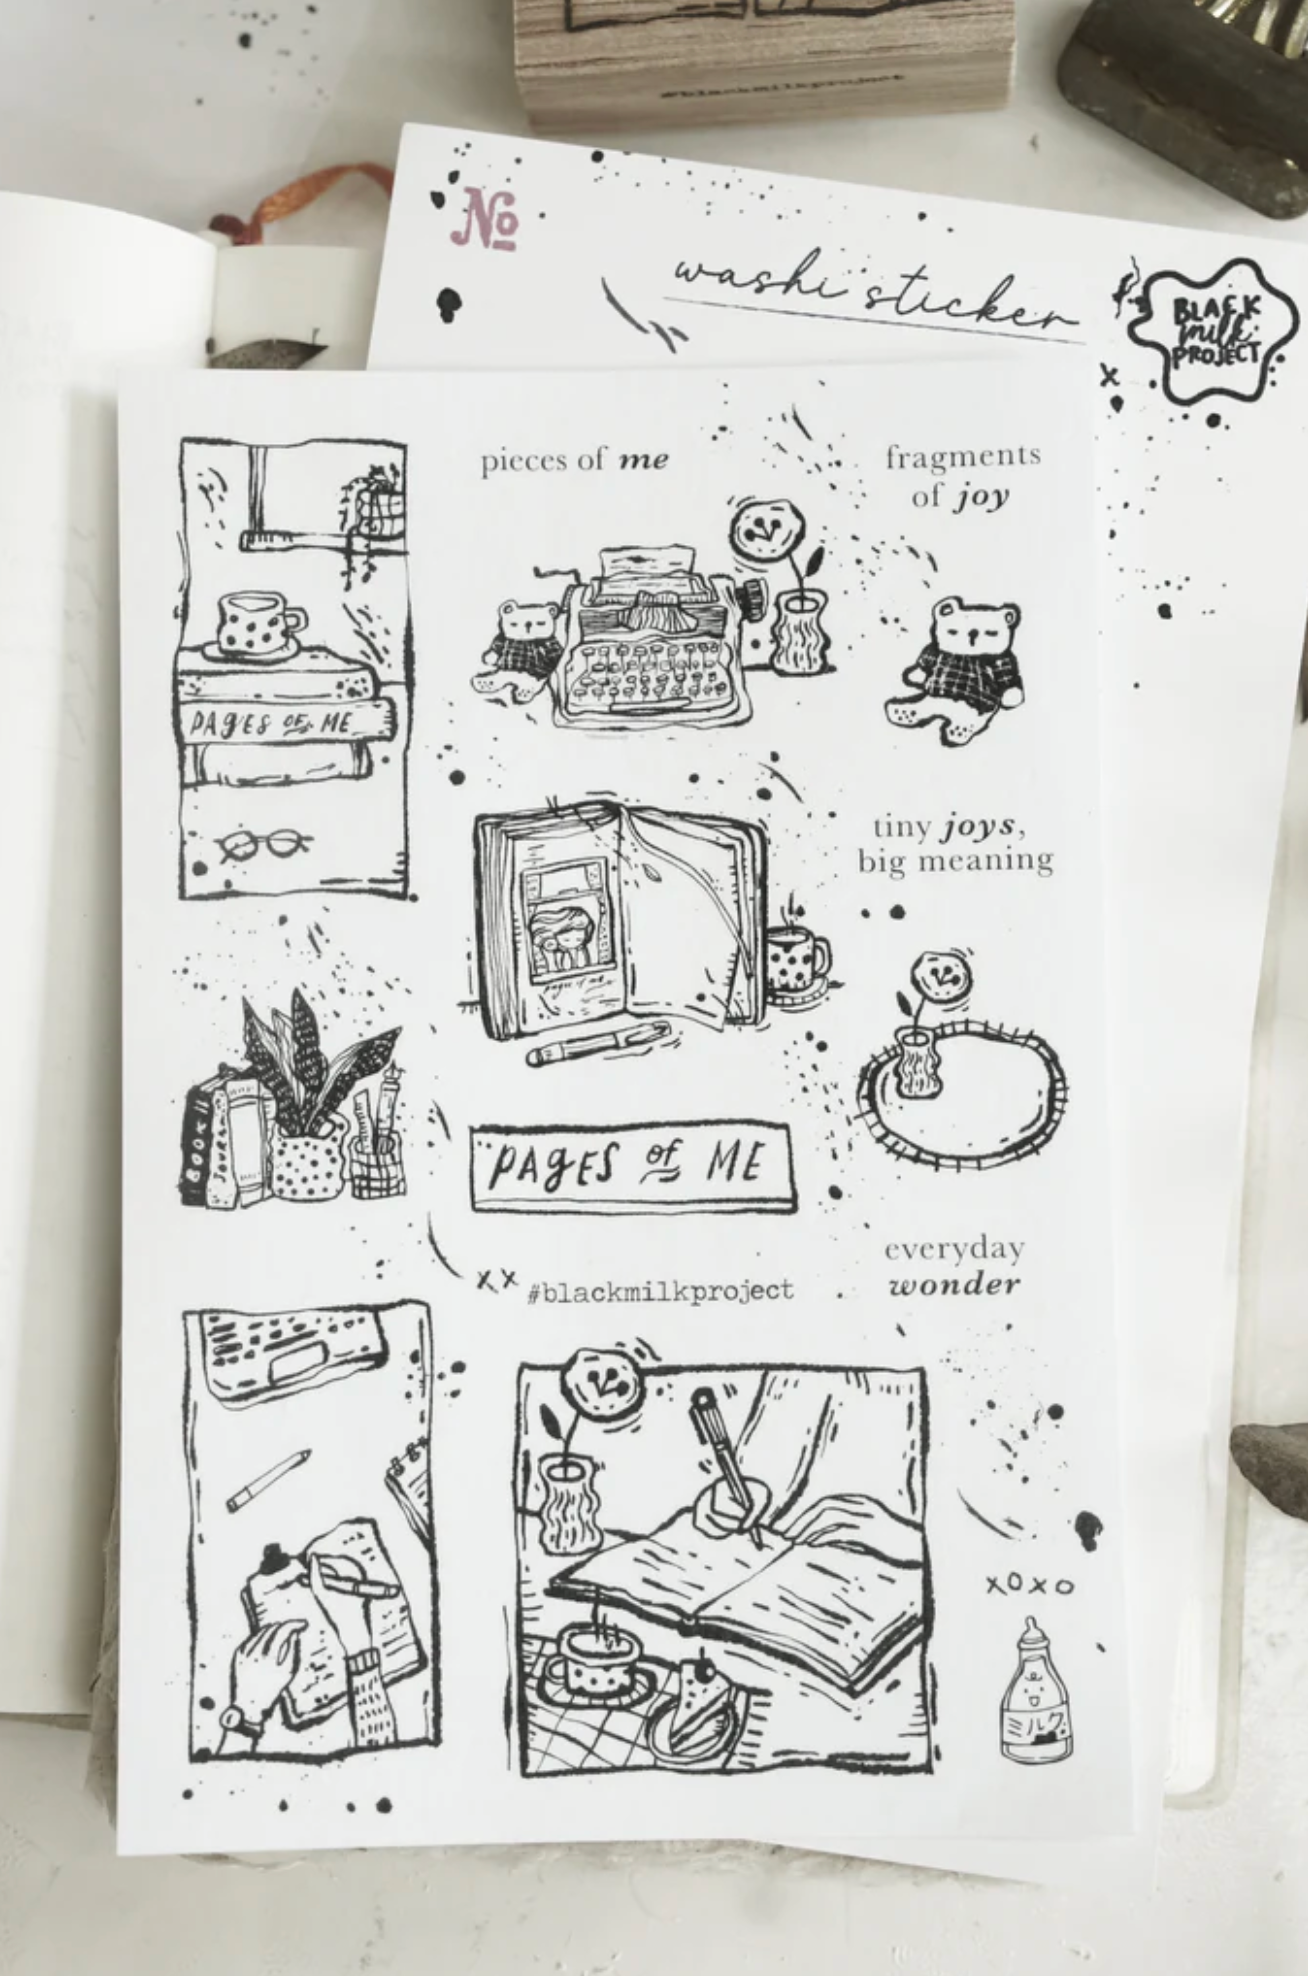 #blackmilkproject
No
washi sticker
BLACK
milk
PROJECT
x
pieces of me
fragments
of joy
PAGES OF ME
tiny joys,
big meaning
BOOK
JOURNAL
PAGES of ME
everyday
wonder
xx #blackmilkproject
xoxo
ミルク